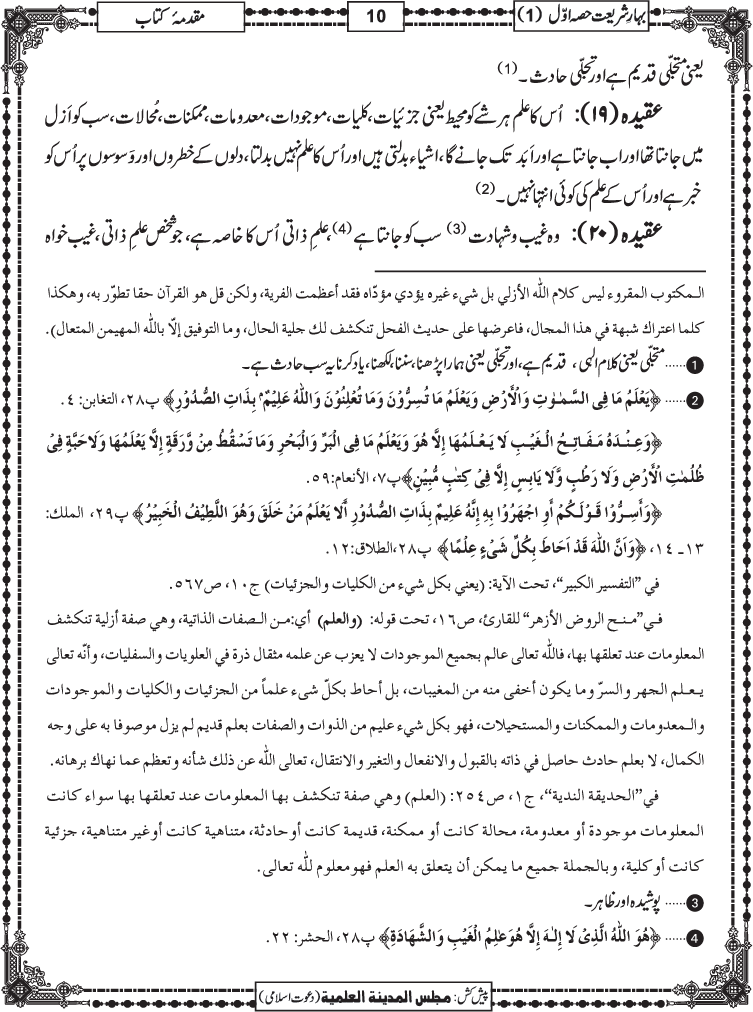 بہارِ شریعت حصہ اوّل (1)
10
مقدمۂ کتاب
یعنی متجلّی قدیم ہے اور تجلّی حادث ۔ (1)
عقیدہ (۱۹): اُس کا علم ہر شے کو محیط یعنی جزئیات، کلیات، موجودات، معدومات، ممکنات، مُحالات، سب کو اَزل
میں جانتا تھا اور اب جانتا ہے اور اَبَد تک جانے گا، اشیاء بدلتی ہیں اور اُس کا علم نہیں بدلتا، دلوں کے خطروں اور وَسوسوں پر اُس کو
خبر ہے اور اُس کے علم کی کوئی انتہا نہیں ۔ (2)
عقیدہ (۲۰): وہ غیب و شہادت (3) سب کو جانتا ہے (4)، علمِ ذاتی اُس کا خاصہ ہے، جو شخص علمِ ذاتی، غیب خواہ
المكتوب المقروء ليس كلام الله الأزلي بل شيء غيره يؤدي مؤدّاه فقد أعظمت الفرية، ولكن قل هو القرآن حقا تطوّر به، وهكذا
كلما اعتراك شبهة في هذا المجال، فاعرضها على حديث الفحل تنكشف لك جلية الحال، وما التوفيق إلّا بالله المهيمن المتعال).
1 ...... متجلّی یعنی کلامِ الہی ، قدیم ہے، اور تجلّی یعنی ہمارا پڑھنا، سننا، لکھنا، یاد کرنا یہ سب حادث ہے۔
2 ...... ﴿يَعْلَمُ مَا فِی السَّمٰوٰتِ وَالْاَرْضِ وَيَعْلَمُ مَا تُسِرُّوْنَ وَمَا تُعْلِنُوْنَ وَاللهُ عَلِيْمٌۢ بِذَاتِ الصُّدُوْرِ﴾ پ٢٨، التغابن: ٤.
﴿وَعِنْدَهٗ مَفَاتِحُ الْغَيْبِ لَا يَعْلَمُهَا إِلَّا هُوَ وَيَعْلَمُ مَا فِی الْبَرِّ وَالْبَحْرِ وَمَا تَسْقُطُ مِنْ وَّرَقَةٍ إِلَّا يَعْلَمُهَا وَلَا حَبَّةٍ فِیْ
ظُلُمٰتِ الْاَرْضِ وَلَا رَطْبٍ وَّلَا يَابِسٍ إِلَّا فِیْ كِتٰبٍ مُّبِيْنٍ﴾ پ٧، الأنعام: ٥٩.
﴿وَأَسِرُّوْا قَوْلَكُمْ أَوِ اجْهَرُوْا بِهٖ إِنَّهٗ عَلِيْمٌ بِذَاتِ الصُّدُوْرِ اَلَا يَعْلَمُ مَنْ خَلَقَ وَهُوَ اللَّطِيْفُ الْخَبِيْرُ﴾ پ٢٩، الملك:
١٣ـ ١٤، ﴿وَأَنَّ اللهَ قَدْ اَحَاطَ بِكُلِّ شَیْءٍ عِلْمًا﴾ پ٢٨، الطلاق: ١٢.
في ”التفسير الكبير“، تحت الآية: (يعني بكل شيء من الكليات والجزئيات) ج١٠، ص٥٦٧.
في ”منح الروض الأزهر“ للقارئ، ص١٦، تحت قوله: (والعلم) أي: من الصفات الذاتية، وهي صفة أزلية تنكشف
المعلومات عند تعلقها بها، فالله تعالى عالم بجميع الموجودات لا يعزب عن علمه مثقال ذرة في العلويات والسفليات، وأنّه تعالى
يعلم الجهر والسرّ وما يكون أخفى منه من المغيبات، بل أحاط بكلّ شيء علماً من الجزئيات والكليات والموجودات
والمعدومات والممكنات والمستحيلات، فهو بكل شيء عليم من الذوات والصفات بعلم قديم لم يزل موصوفا به على وجه
الكمال، لا بعلم حادث حاصل في ذاته بالقبول والانفعال والتغير والانتقال، تعالى الله عن ذلك شأنه وتعظم عما نهاك برهانه.
في ”الحديقة الندية“، ج١، ص٢٥٤: (العلم) وهي صفة تنكشف بها المعلومات عند تعلقها بها سواء كانت
المعلومات موجودة أو معدومة، محالة كانت أو ممكنة، قديمة كانت أو حادثة، متناهية كانت أو غير متناهية، جزئية
كانت أو كلية، وبالجملة جميع ما يمكن أن يتعلق به العلم فهو معلوم لله تعالى.
3 ...... پوشیدہ اور ظاہر۔
4 ...... ﴿هُوَ اللهُ الَّذِیْ لَا إِلٰهَ إِلَّا هُوَ عٰلِمُ الْغَيْبِ وَالشَّهَادَةِ﴾ پ٢٨، الحشر: ٢٢.
پیش کش: مجلس المدينة العلمية (دعوت اسلامی)